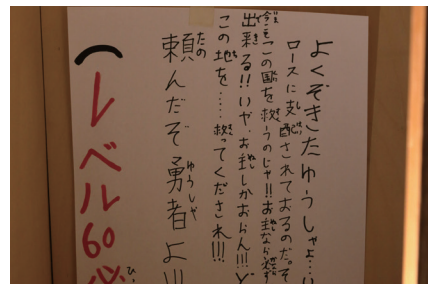 よくぞきたゆうしゃよ…い
ロースに支配されておるのだ。そ
今こそこの国を救うのじゃ!!お主なら必ず
出来る!!いや、お主しかおらん!!!ど
この地を……救ってくだされ!!!
頼んだぞ勇者よ!!!
(レベル60必